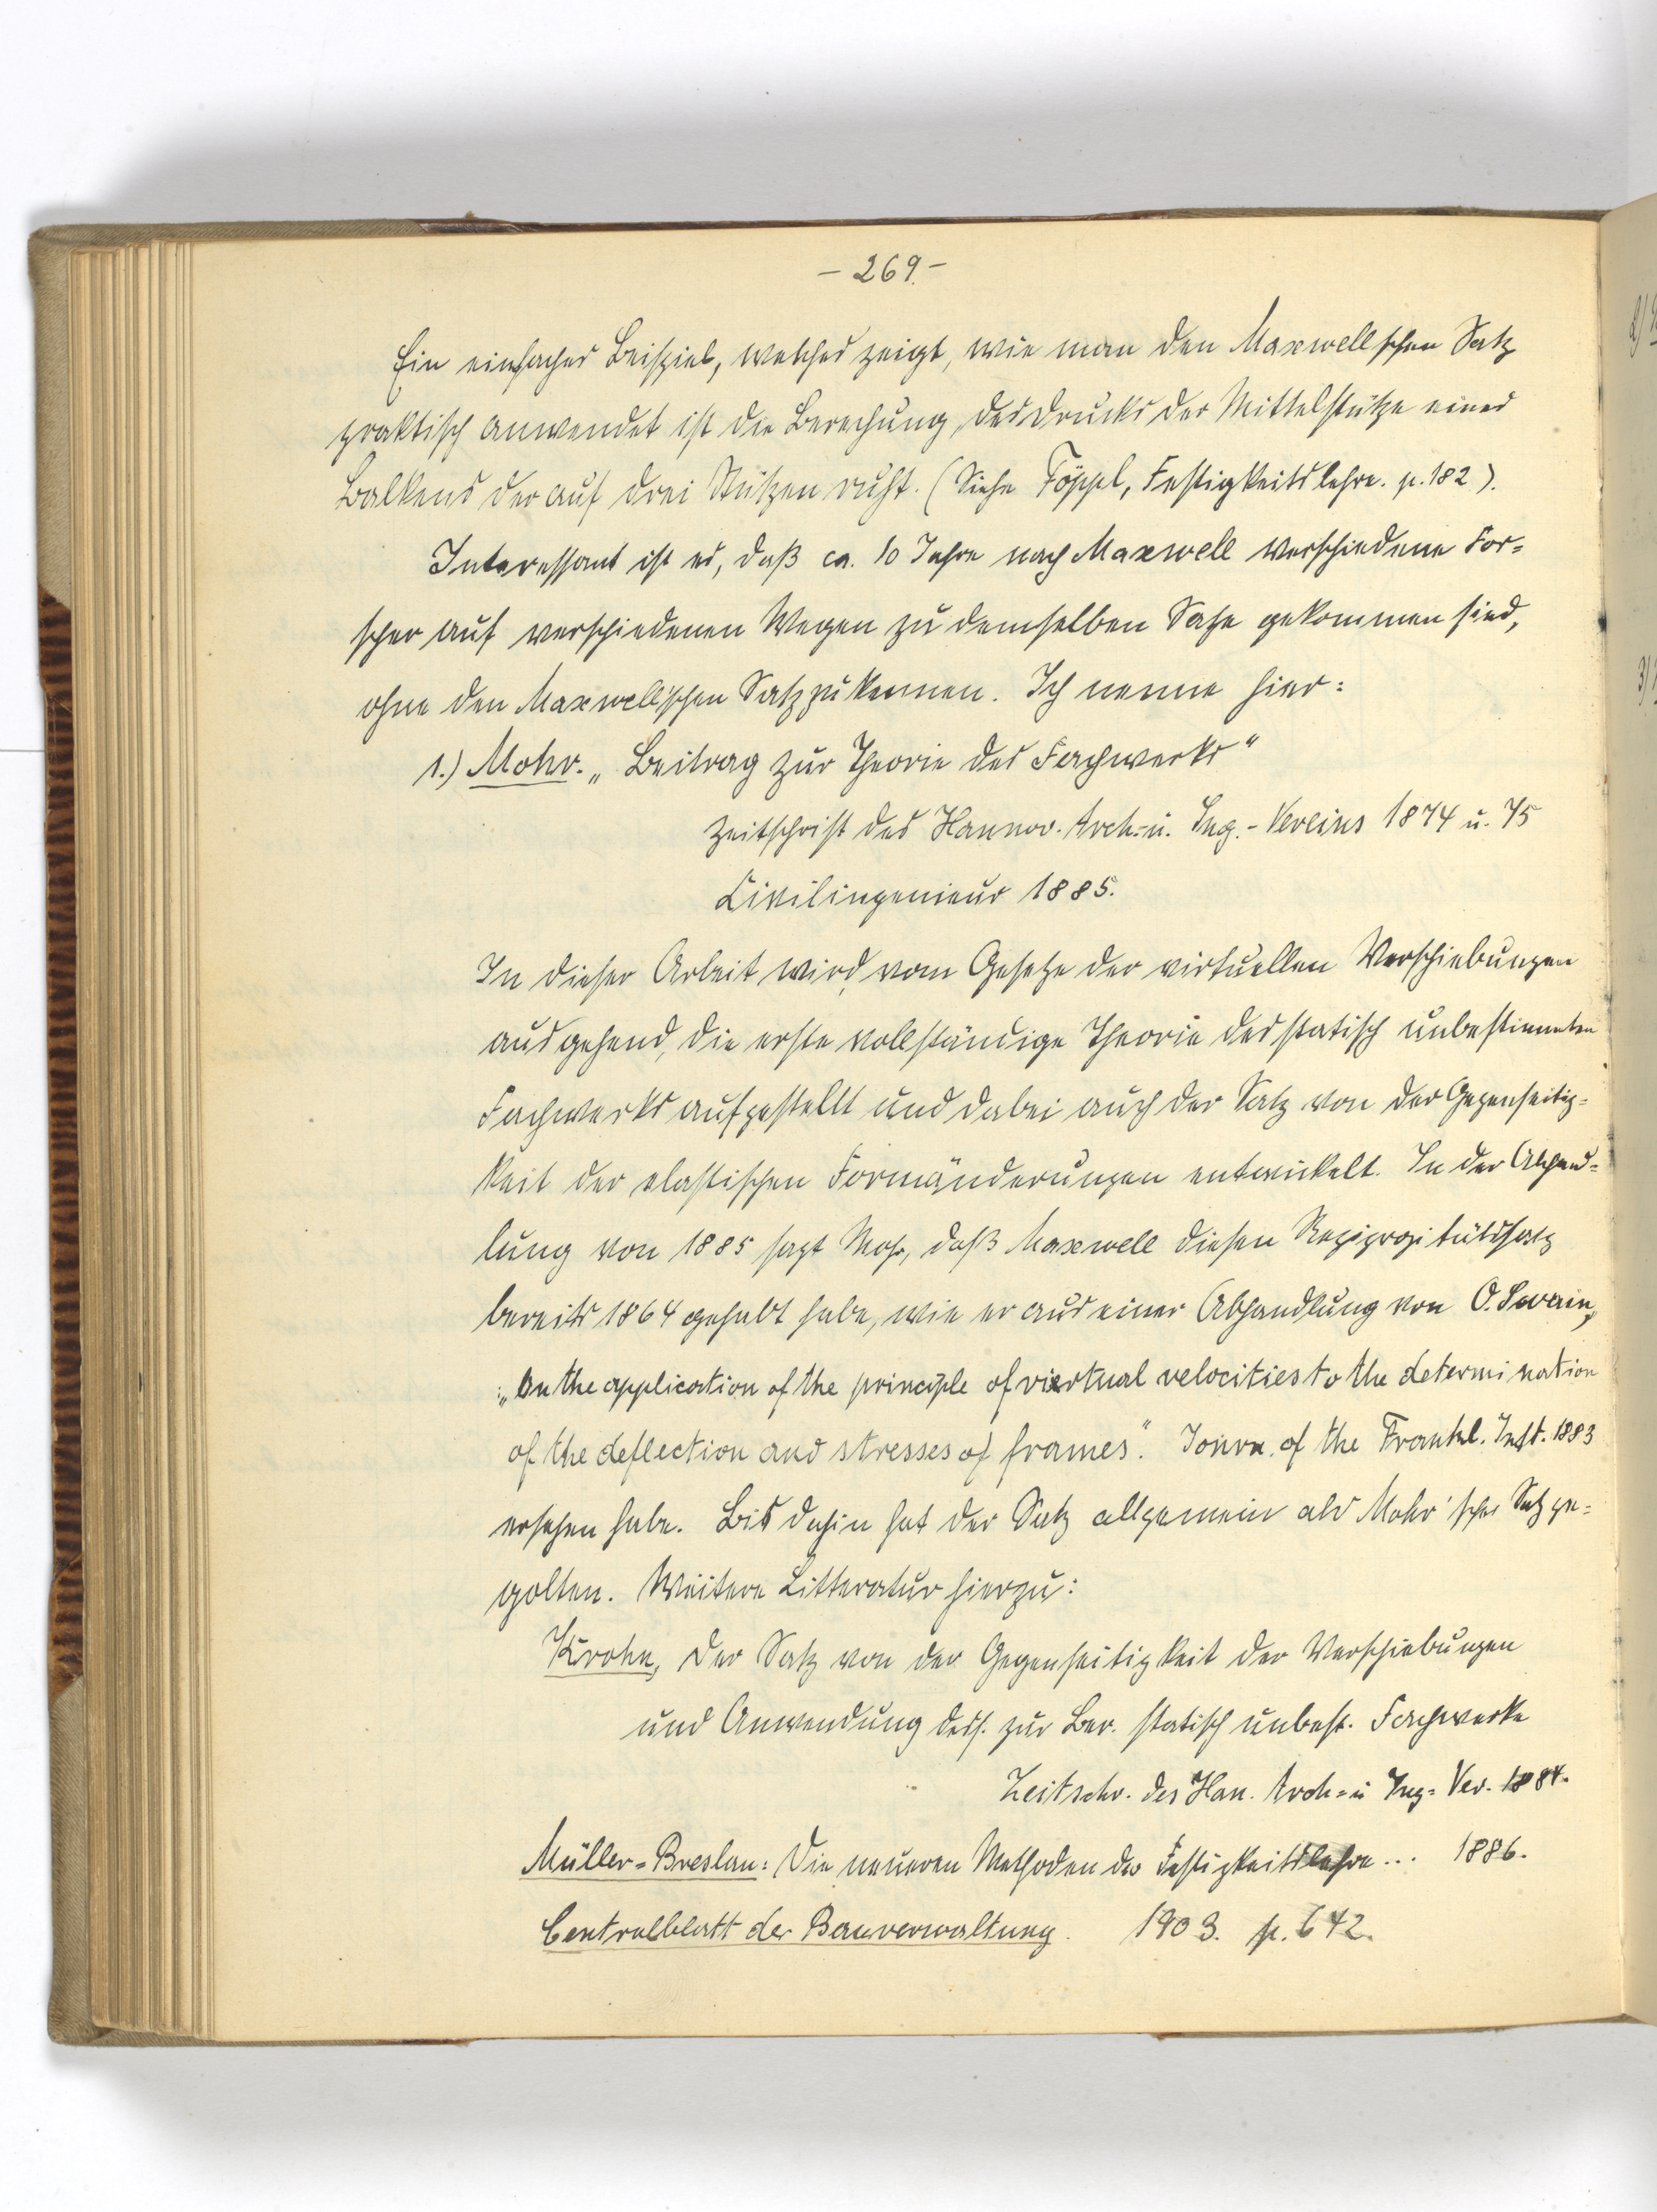 - 269. -
Ein einfaches Beispiel, welches zeigt, wie man den Maxwellschen Satz
praktisch anwendet ist die Berechung, des Drucks der Mittelstütze eines
Balkens der auf drei Stützen ruht. (Siehe Föppl, Festigkeitslehre. p. 182).
Interessant ist es, daß ca. 10 Jahre nach Maxwell verschiedene For=
scher auf verschiedenen Wegen zu demselben Satze gekommen sind,
ohne den Maxwell'schen Satz zu kennen. Ich nenne hier:
1.) Mohr. „Beitrag zur Theorie des Fachwerks"
Zeitschrift des Hannov. Arch.- u. Ing.-Vereins 1874 u. 75
Civilingenieur 1885.
In dieser Arbeit wird, vom Gesetze der virtuellen Verschiebungen
ausgehend, die erste vollständige Theorie des statisch unbestimmten
Fachwerks aufgestellt und dabei auch der Satz von der Gegenseitig=
keit der elastischen Formänderungen entwickelt. In der Abhand=
lung von 1885 sagt Mohr, daß Maxwell diesen Reziprozitätssatz
bereits 1864 gehabt habe, wie er aus einer Abhandlung von O. Swain,
„On the application of the principle of viertual velocities to the determination
of the deflection and stresses of frames". Journ. of the Frankl. Inst. 1883
ersehen habe. Bis dahin hat der Satz allgemein als Mohr'scher Satz ge=
golten. Weitere Litteratur hierzu:
Krohn, Der Satz von der Gegenseitigkeit der Verschiebungen
und Anwendung dess. zur Ber. statisch unbest. Fachwerke
Zeitschr. des Han. Arch= u Ing= Ver. 1884.
Müller=Breslau: Die neueren Methoden der Festigkeitslehre... 1886.
Centralblatt der Bauverwaltung. 1903. p. 642.